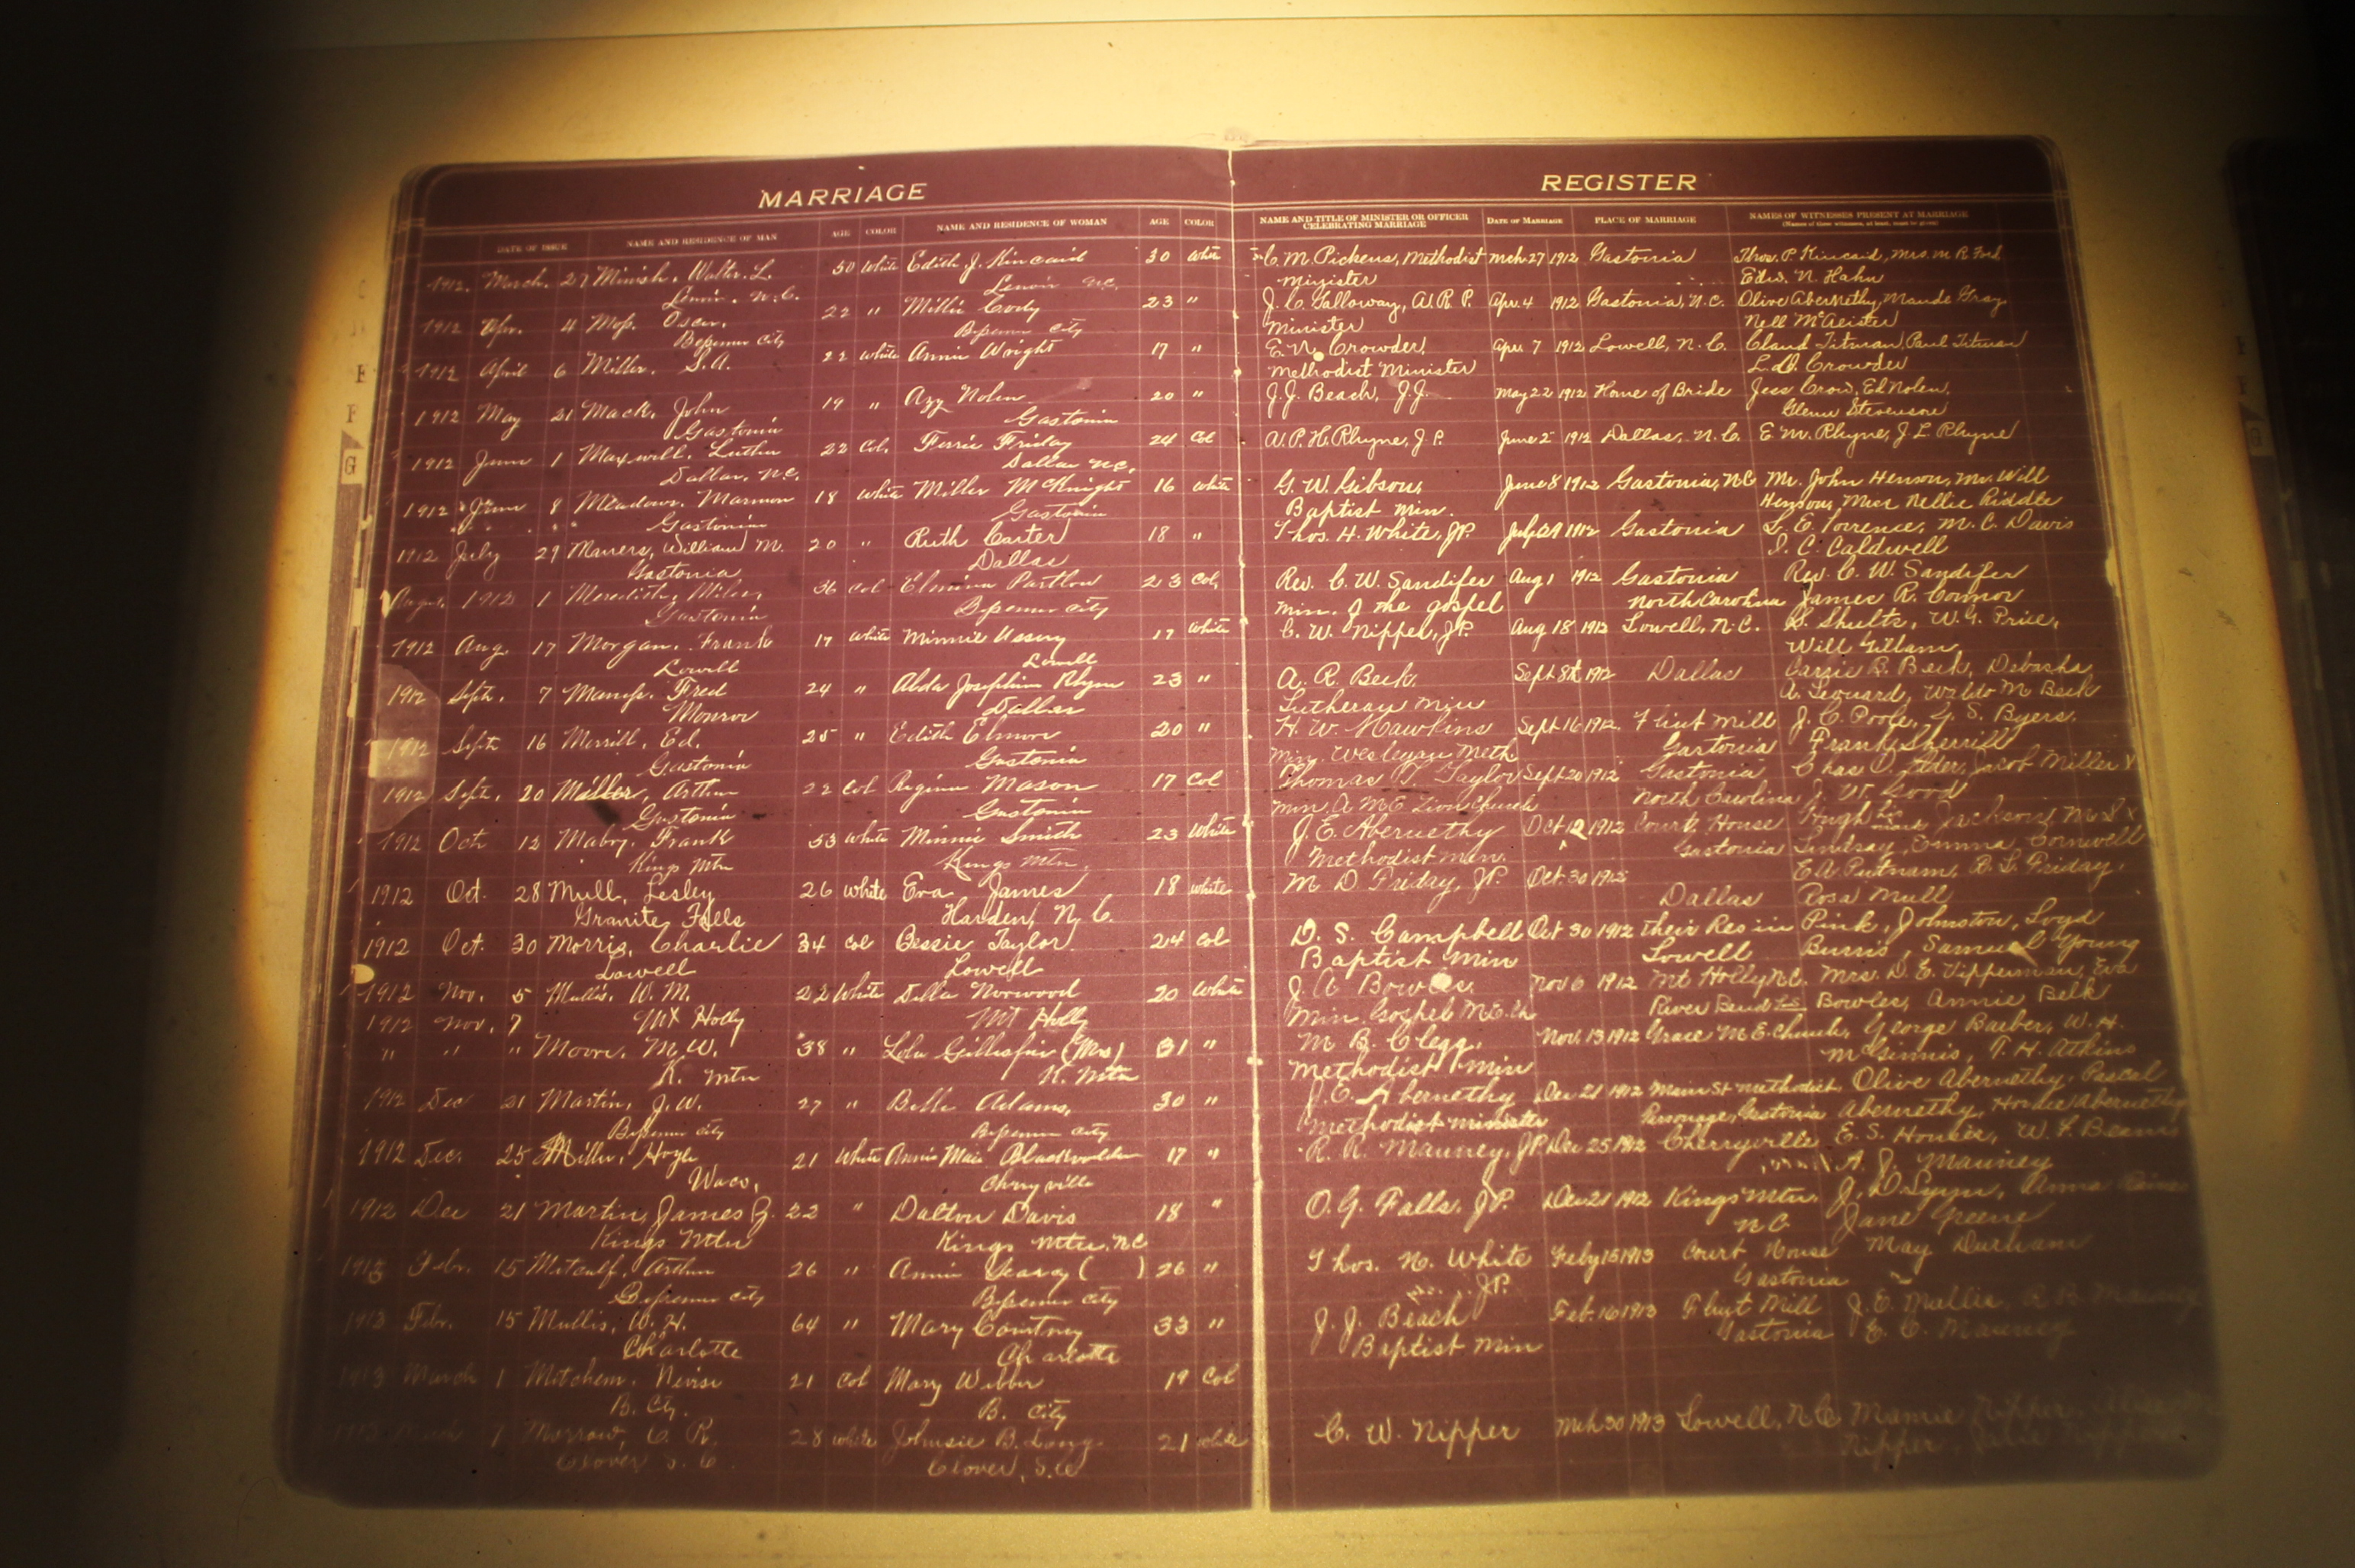 MARRIAGE
DATE OF ISSUE NAME AND RESIDENCE OF MAN AGE COLOR NAME AND RESIDENCE OF WOMAN AGE COLOR
1912. March. 27 Minish, Walter. L. 50 White Edith J. Kincaid 30 White
Lenoir. N.C. Lenoir N.C.
1912 Apr. 4 Moss. Oscar. 22 " Millie Cody 23 "
Bessemer City Bessemer City
1912 April 6 Miller. S.A. 22 White Annie Wright 17 "
1912 May 21 Mack. John 19 " Azy Nolen 20 "
Gastonia Gastonia
1912 June 1 Maxwell. Luther 22 Col. Ferrie Friday 24 Col
Dallas. N.C. Dallas N.C.
1912 June 8 Meadows. Marmon 18 White Miller McKnight 16 White
Gastonia Gastonia
1912 July 29 William M. 20 " Ruth Carter 18 "
Gastonia Dallas
August. 1912 1 Meredith, Miles, 36 Col Elmina Partlow 23 Col,
Gastonia Bessemer City
1912 Aug. 17 Morgan. Frank 17 White Minnie 17 White
Lowell Lowell
1912 Sept. 7 Fred 24 " Alda Josephine Rhyne 23 "
Monroe Dallas
1912 Sept 16 Merrill, Ed. 25 " Edith Elmore 20 "
Gastonia Gastonia
1912 Sept. 20 Miller, Arthur 22 Col Regina Mason 17 Col
Gastonia Gastonia
1912 Oct 12 Mabry. Frank 53 White Minnie Smith 23 White
Kings Mtn Kings Mtn.
1912 Oct. 28 Mull, Lesley 26 White Eva James 18 White
Granite Falls Harden, N.C.
1912 Oct. 30 Morris, Charlie 34 Col Bessie Taylor 24 Col
Lowell Lowell
1912 Nov. 5 Mullis. W. M. 22 White Della Norwood 20 White
1912 Nov. 7 Mt Holly Mt Holly
" " " Moore. M.W. 38 " Lola Gillespie (Mrs) 31 "
K. Mtn K. Mtn
1912 Dec 21 Martin, J.W. 27 " Belle Adams, 30 "
Bessemer City Bessemer City
1912 Dec. 25 Miller, 21 White Annie Maie Blackwelder 17 "
Waco, Cherryville
1912 Dec 21 Martin, James Z. 22 " Dalton Davis 18 "
Kings Mtn Kings Mtn. N.C
1913 Febr. 15 Metcalf. Arthur 26 " Annie ( ) 26 "
Bessemer City Bessemer City
1913 Febr. 15 Mullis, W. H. 64 " Mary Courtney 33 "
Charlotte Charlotte
1913 March 1 Mitchem. 21 Col Mary Webber 19 Col
B. Cty. B. City
1913 March 7 Morrow, C. R. 28 White Johnsie B. Long 21 White
Clover S. C. Clover, S.C
REGISTER
NAME AND TITLE OF MINISTER OR OFFICER CELEBRATING MARRIAGE DATE OF MARRIAGE PLACE OF MARRIAGE NAMES OF WITNESSES PRESENT AT MARRIAGE
(Names of three witnesses, at least, must be given)
C. M. Pickens, Methodist Mch 27 1912 Gastonia Thos. P. Kincaid, Mrs. M. R. Ford
Minister Edw. N. Hahn
J. C. Galloway, A.R.P. Apr. 4 1912 Gastonia, N.C. Olive Abernethy, Maude Gray
Minister Nell McAleister
E. N. Crowder, Apr. 7 1912 Lowell, N. C. Claud Titman, Paul Titman
Methodist Minister L.D. Crowder
J.J. Beach, J.J. May 22 1912 Home of Bride Jess Crow, Ed Nolen,
Glenn Stevenson
A. P. H. Rhyne, J P. June 2 1912 Dallas, N. C. E. M. Rhyne, J L. Rhyne
G. W. Gibson, June 8 1912 Gastonia, NC Mr. John Henson, Mr. Will
Baptist Min. Henson, Miss Nellie Riddle
Thos. H. White, JP. July 29 1912 Gastonia L. E. Torrence, M. C. Davis
J. C. Caldwell
Rev. C. W. Sandifer Aug 1 1912 Gastonia Rev. C. W. Sandifer
Min. of the gospel North Carolina James R. Connor
C. W. Nipper, J.P. Aug 18 1912 Lowell, N.C. L. Shults, W. G. Price,
Will Gillam
A. R. Beck, Sept 8th 1912 Dallas Carrie B. Beck,
Lutheran Min A. Leonard, Waldo M Beck
H. W. Hawkins Sept 16 1912. Flint Mill J. C. Poole, G. S. Byers.
Min. Wesleyan Meth Gastonia Frank Sherrill
Thomas T. Taylor Sept 20 1912 Gastonia Chas. C. Elder, Jacob Miller X
Min. A M E Zion Church North Carolina J. W. Good
J. E. Abernethy Oct 12 1912 Court House Hugh his mark Jackson,
Methodist Min. Gastonia Lindsay, Emma, Cornwell
M D Friday, JP. Oct. 30 1912 E.A. Putnam, R. L. Friday,
Dallas Rosa Mull
D. S. Campbell Oct 30 1912 Their Res in Pink, Johnston, Loyd
Baptist Min Lowell Burris, Samuel Young
J. A Bowles, Nov 6 1912 Mt Holly NC. Mrs. D. E. Tipperman, Eva
Min Gospel M.E. Ch River Bend Bowles, Annie Belk
M B. Clegg, Nov. 13 1912 Grace M E. Church, George Barber, W. H.
Methodist Min McGinnis, T. H. Atkins
J. E. Abernethy Dec 21 1912 Main St Methodist, Olive Abernethy, Pascal
Methodist Minister Parsonage, Gastonia Abernethy, Abernethy
R. R. Mauney, JP. Dec 25 1912 Cherryville E. S. Houser, W. F. Beam
A. J. Mauney
O. G. Falls, JP. Dec 21 1912 Kings Mtn. J. D Lynn, Anna
N C Jane Greene
Thos. N. White Feby 15 1913 Court House May Durham
JP. Gastonia
J. J. Beach Feb. 16 1913 Flint Mill J. E. Mullis,
Baptist Min Gastonia E. C. Mauney
C. W. Nipper Mch 30 1913 Lowell, N C Mamie Nipper,
Nipper,
F
G